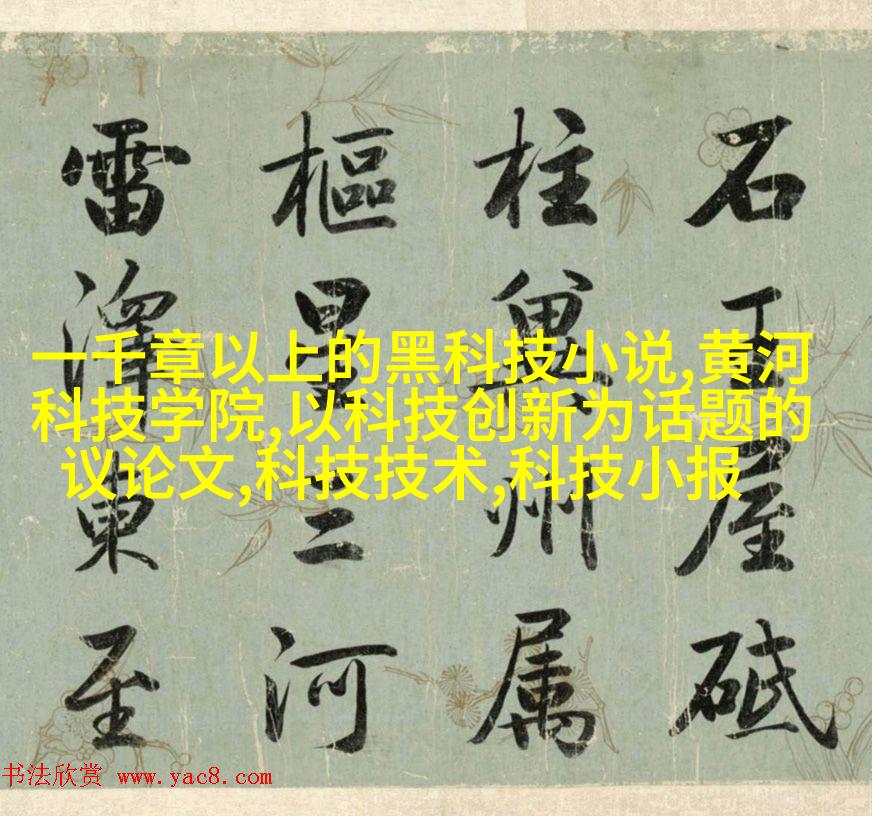 石王屋砥
柱冀州属
樞星三河
雷澤東至
一千章以上的黑科技小说,黄河
科技学院,以科技创新为话题的
议论文,科技技术,科技小报
书法欣赏 www.yac8.com